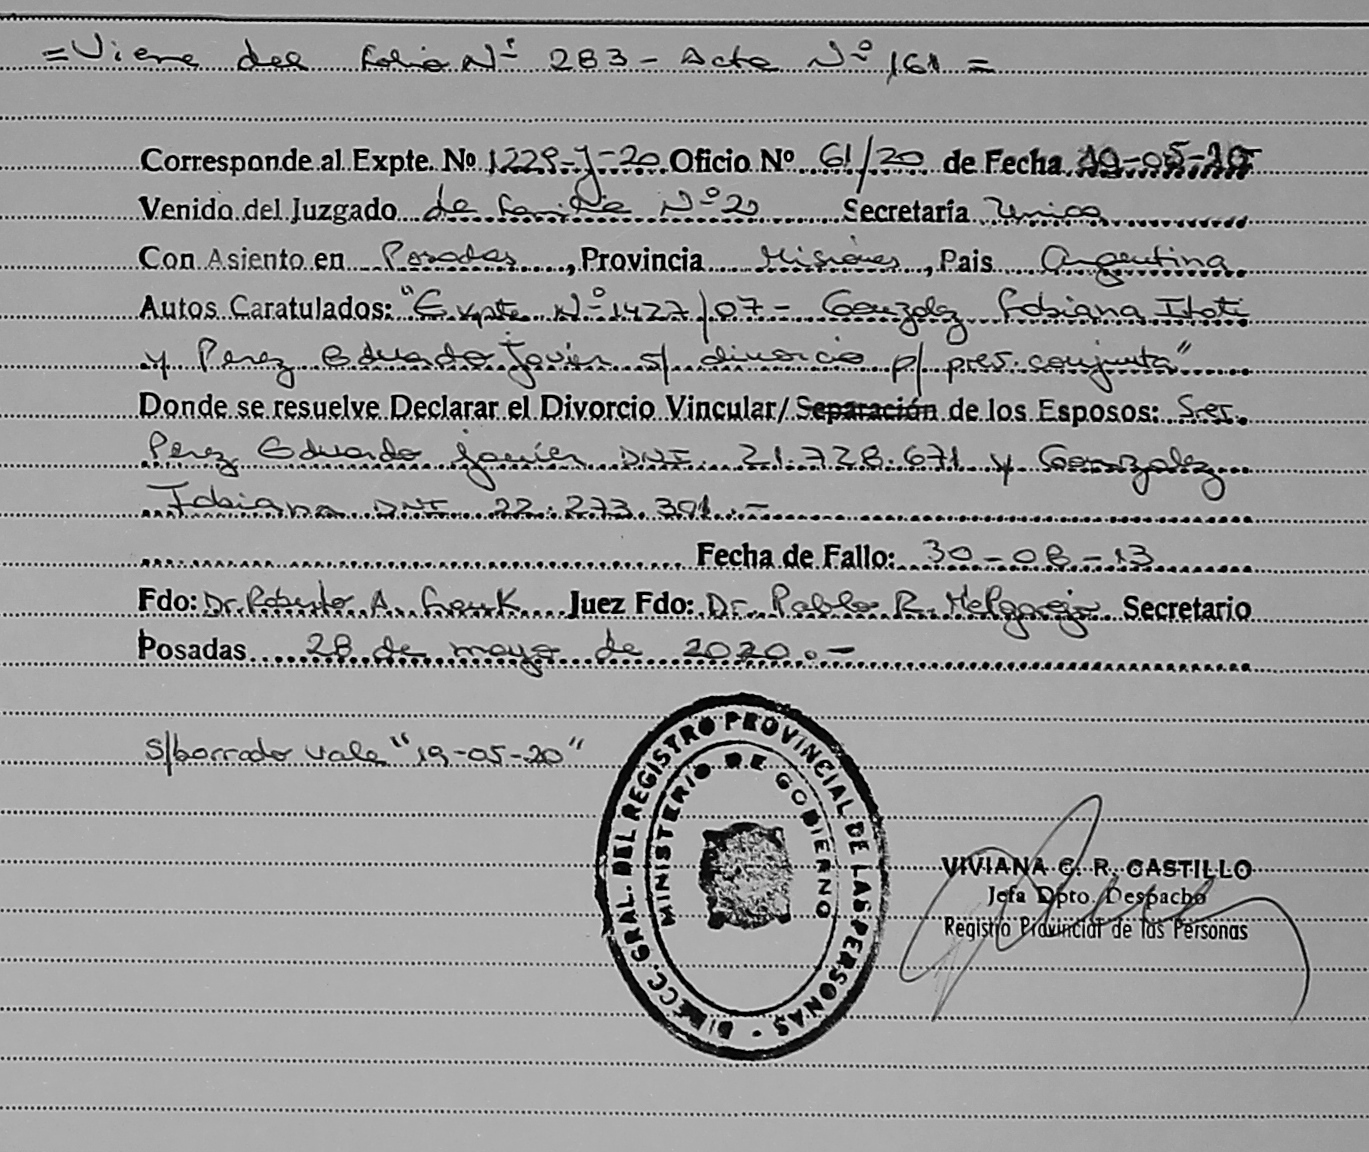 =Viene del folio Nº 283 - Acta Nº 161 =
Corresponde al Expte. Nº 1229-J-20 Oficio Nº 61/20 de Fecha 19-05-20
Venido del Juzgado de Familia Nº 2 Secretaría Unica
Con Asiento en Posadas, Provincia Misiones, Pais Argentina
Autos Caratulados: "Expte Nº 1427/07 - Gonzalez Fabiana Itati
y Perez Eduardo Javier s/ divorcio p/ pres. conjunta"
Donde se resuelve Declarar el Divorcio Vincular/ Separación de los Esposos: Sres.
Perez Eduardo Javier DNI 21.728.671 y Gonzalez
Fabiana DNI 22.273.391.-
Fecha de Fallo: 30-08-13
Fdo: Dr. Roberto A. Juez Fdo: Dr. Pablo R. Melgarejo Secretario
Posadas 28 de mayo de 2020.-
s/borrado vale "19-05-20"
DIRECC. GRAL. DEL REGISTRO PROVINCIAL DE LAS PERSONAS -
MINISTERIO DE GOBIERNO
VIVIANA C. R. CASTILLO
Jefa Dpto. Despacho
Registro Provincial de las Personas